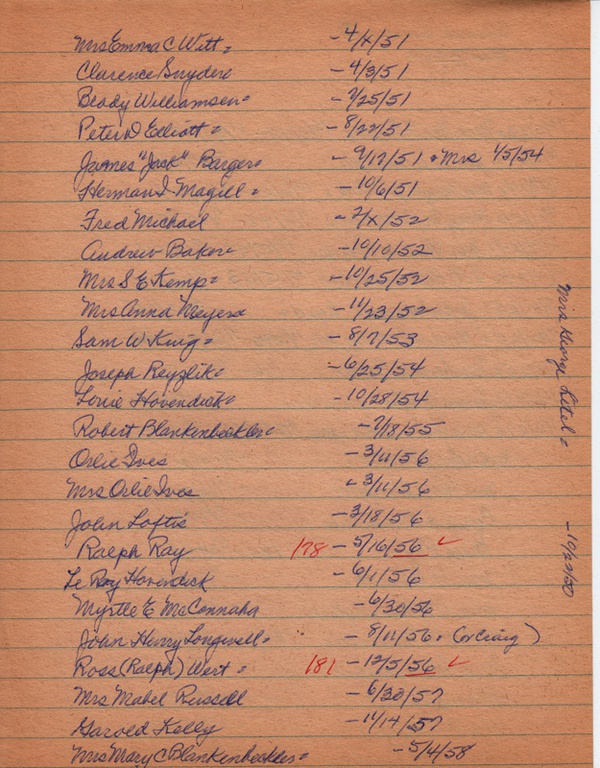 Mrs Emma C Witt = - 4/x/51
Clarence Snyder= - 4/3/51
Beady Williamsen= - 7/25/51
Peter D Elliott = - 8/22/51
James "Jack" Barger= - 9/17/51 + Mrs 4/5/54
Herman I Magill = - 10/6/51
Fred Michael - 7/x/52
Andrew Baker= - 10/10/52
Mrs S E Kemp = - 10/25/52
Mrs Anna Meyers= - 11/23/52
Sam W King = - 8/7/53
Joseph Reyzlik= - 6/25/54
Louie Hovendick= - 10/28/54
Robert Blankenbeckler= - 7/18/55
Orlie Ives - 3/11/56
Mrs Orlie Ives - 3/11/56
John Loftis - 3/18/56
Ralph Ray 178 - 5/16/56 ✓
Le Roy Hovendick - 6/1/56
Myrtle E McConnaha - 6/30/56
John Henry Longwell= - 8/11/56 = (or Craig)
Ross (Ralph) Wert = 181 - 12/5/56 ✓
Mrs Mabel Russell - 6/20/57
Harold Kelly - 11/14/57
Mrs Mary C Blankenbeckler= - 5/4/58
Mrs George Litel = - 10/22/50